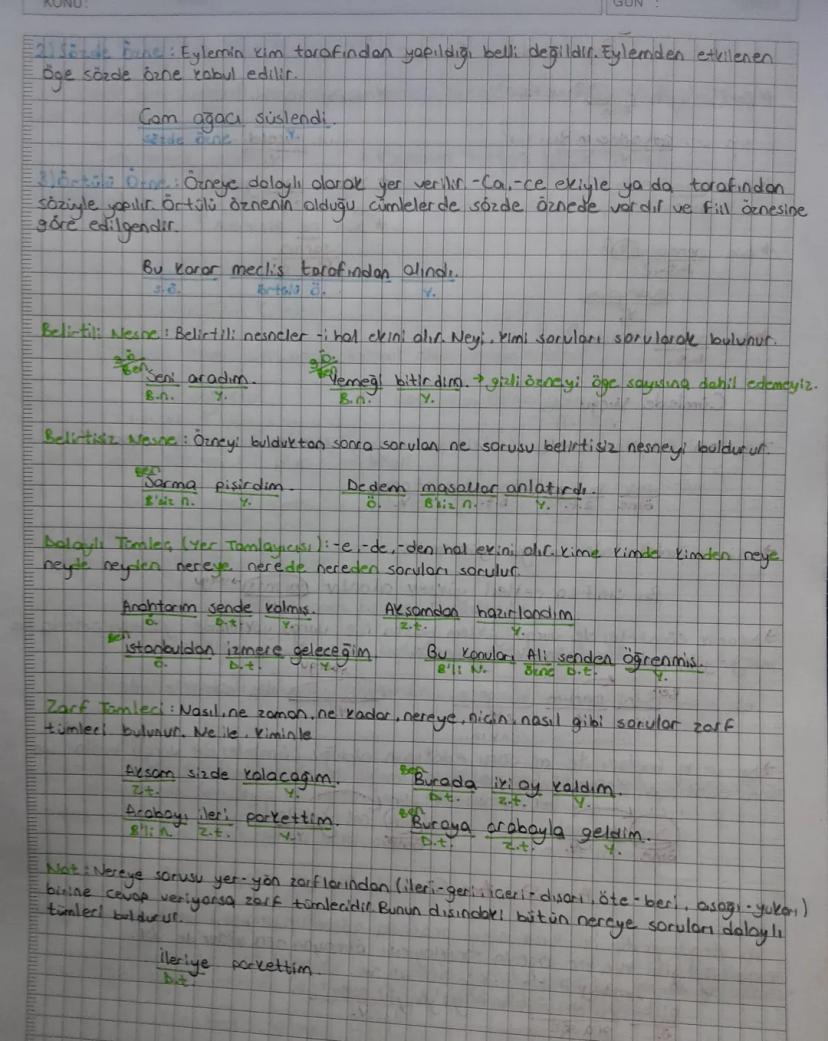 KONU:
GÜN :
2) Sözde Özne: Eylemin kim tarafından yapıldığı belli değildir. Eylemden etkilenen
öge sözde özne kabul edilir.
Çam ağacı süslendi.
sözde özne Y.
3) Örtülü Özne: Özneye dolaylı olarak yer verilir. -Ca, -ce ekiyle ya da tarafından
sözüyle yapılır. Örtülü öznenin olduğu cümlelerde sözde öznede vardır ve fiil öznesine
göre edilgendir.
Bu karar meclis tarafından alındı.
s.ö. Örtülü Ö. Y.
Belirtili Nesne: Belirtili nesneler -i hal ekini alır. Neyi, kimi soruları sorularak bulunur.
g.ö. g.ö.
Ben Seni aradım. Ben Yemeği bitirdim. → gizli özneyi öge sayısına dahil edemeyiz.
B.n. Y. B.n. Y.
Belirtisiz Nesne: Özneyi bulduktan sonra sorulan ne sorusu belirtisiz nesneyi buldurur.
Ben Sarma pişirdim. Dedem masallar anlatırdı.
B'siz n. Y. Ö. B'siz n. Y.
Dolaylı Tümleç (Yer Tamlayıcısı): -e, -de, -den hal ekini alır. kime kimde kimden neye
neyde neyden nereye nerede nereden soruları sorulur.
Anahtarım sende kalmış. Akşamdan hazırlandım
Ö. D.t. Y. Z.t. Y.
Ben istanbuldan izmere geleceğim Bu konuları Ali senden öğrenmiş.
Ö. D.t. Y. B'li N. Özne D.t. Y.
Zarf Tümleci: Nasıl, ne zaman, ne kadar, nereye, niçin, nasıl gibi sorular zarf
tümleci bulunur. Ne ile, kiminle
Akşam sizde kalacağım. Ben Burada iki ay kaldım.
Z.t. Y. D.t. Z.t. Y.
Arabayı ileri parkettim. Ben Buraya arabayla geldim.
B'li n. Z.t. Y. D.t. Z.t. Y.
Not: Nereye sorusu yer-yön zarflarından (ileri-geri, içeri-dışarı, öte-beri, aşağı-yukarı)
birine cevap veriyorsa zarf tümlecidir. Bunun dışındaki bütün nereye soruları dolaylı
tümleci buldurur.
ileriye parkettim.
D.t.